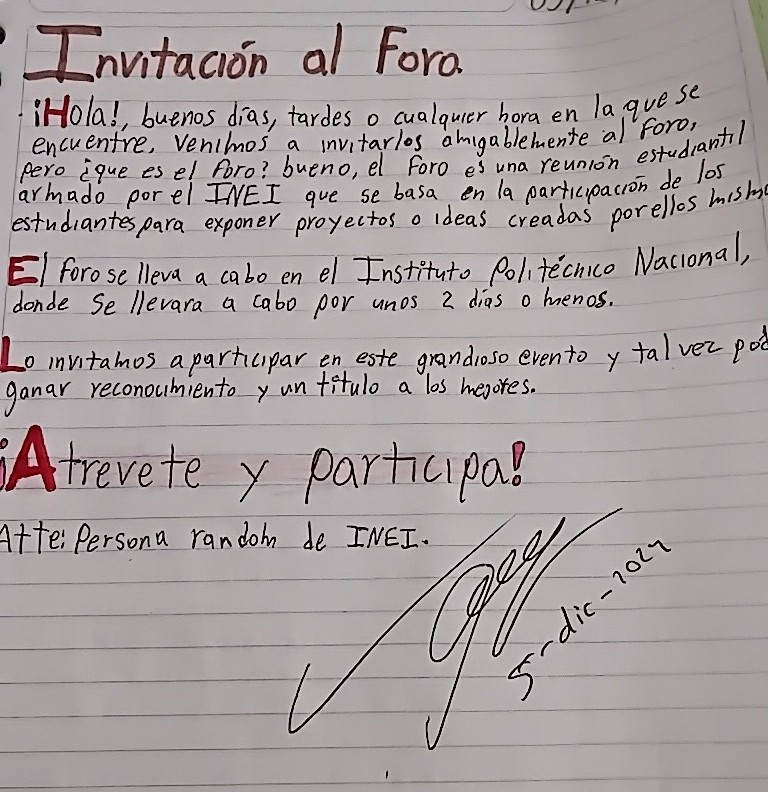 Invitación al Foro.
¡Hola!, buenos días, tardes o cualquier hora en la que se
encuentre, venimos a invitarlos amigablemente al foro,
pero ¿que es el foro? bueno, el foro es una reunión estudiantil
armado por el INEI que se basa en la participación de los
estudiantes para exponer proyectos o ideas creadas por ellos mismo
El foro se lleva a cabo en el Instituto Politécnico Nacional,
donde se llevara a cabo por unos 2 días o menos.
Lo invitamos a participar en este grandioso evento y tal vez pod
ganar reconocimiento y un título a los mejores.
¡Atrevete y participa!
Atte: Persona random de INEI.
5-dic-2022